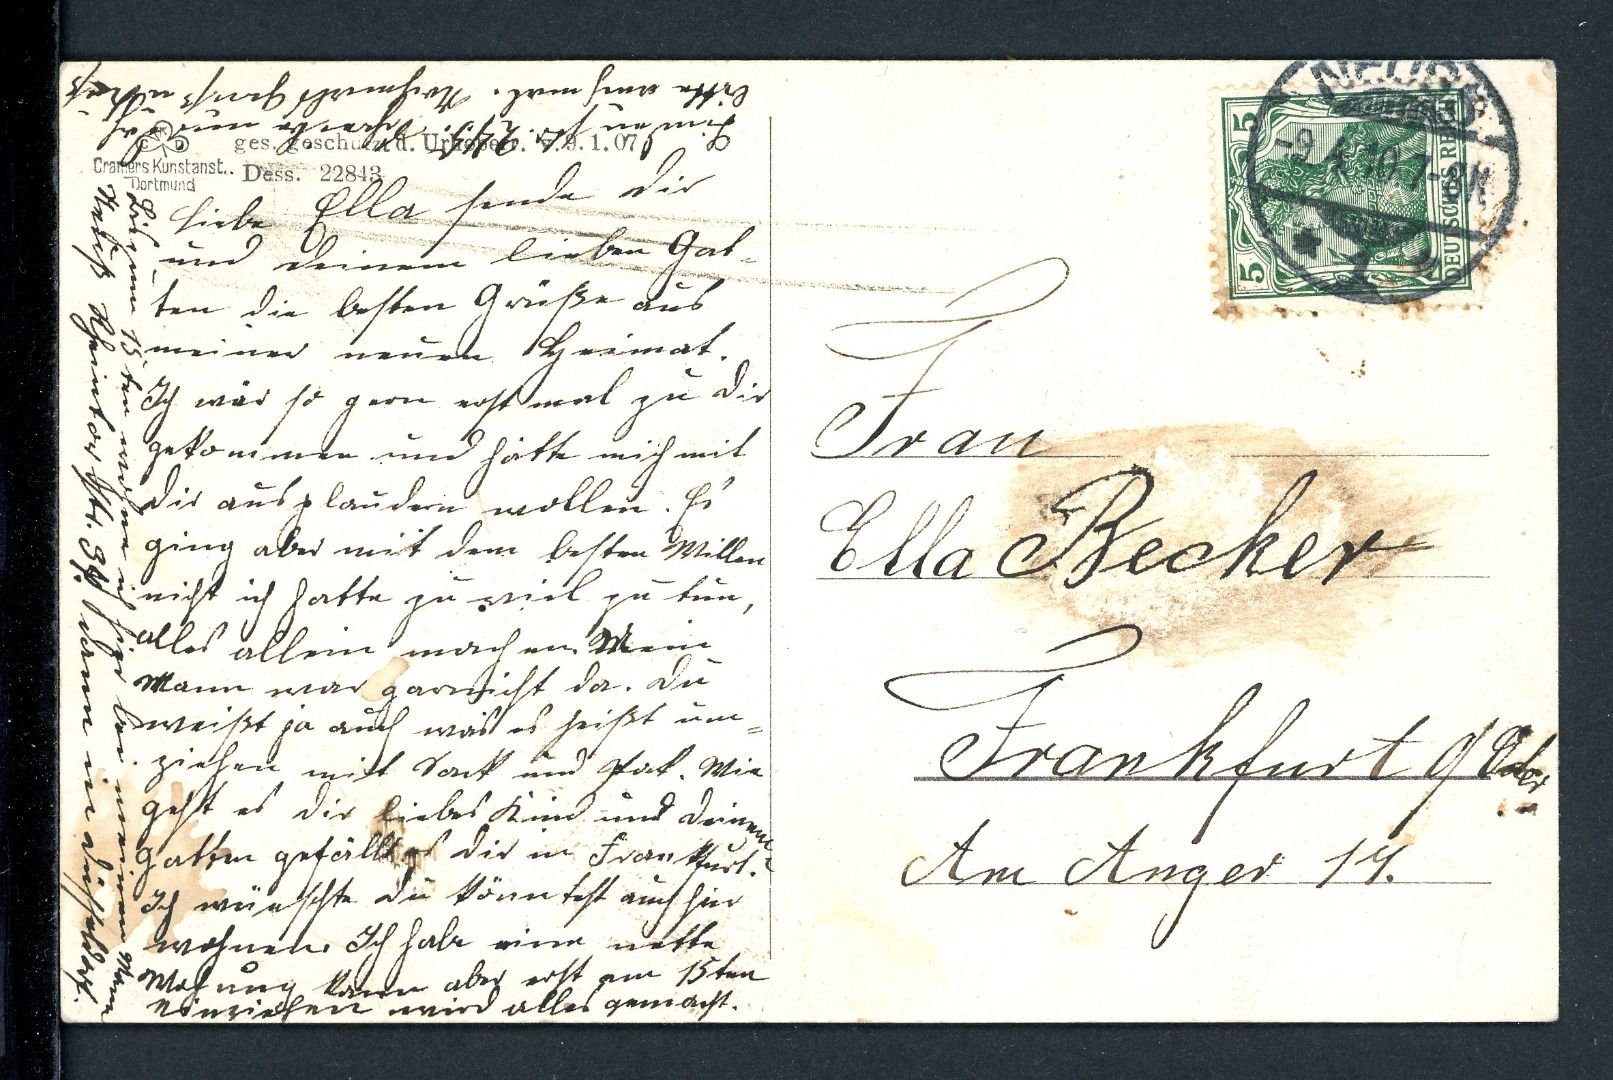 Cramers Kunstanst.
Dortmund
ges. geschützt d. Urheberr. v. 9.1.07
Dess. 22843
Liebe Ella sende Dir
und deinem lieben Gat-
ten die besten Grüße aus
meiner neuen Heimat.
Ich wär so gern erst mal zu Dir
gekommen und hätte mich mit
Dir ausplaudern wollen. Es
ging aber mit dem besten Willen
nicht ich hatte zu viel zu tun,
alles allein machen. Mein
Mann war garnicht da. Du
weißt ja auch was es heißt um-
ziehen mit Sack und Pak. Wie
geht es Dir liebes Kind und Deinem
Gatten gefällt es Dir in Frankfurt.
Ich wünschte Du könntest auch hir
wohnen. Ich habe eine nette
Wohung kann aber erst am 15ten
einziehen wird alles gemacht.
Bis zum 15ten wohne ich hier bei meinem Mann
Neuß Rheintorstr. dann in Düsseldorf.
bitte nochmal. Nochmals Gruß u. Kuß
NEUSS
-9.4.10.7-8N.
1
5
5
DEUTSCHES REICH
Frau
Ella Becker
Frankfurt a/Oder
Am Anger 14.